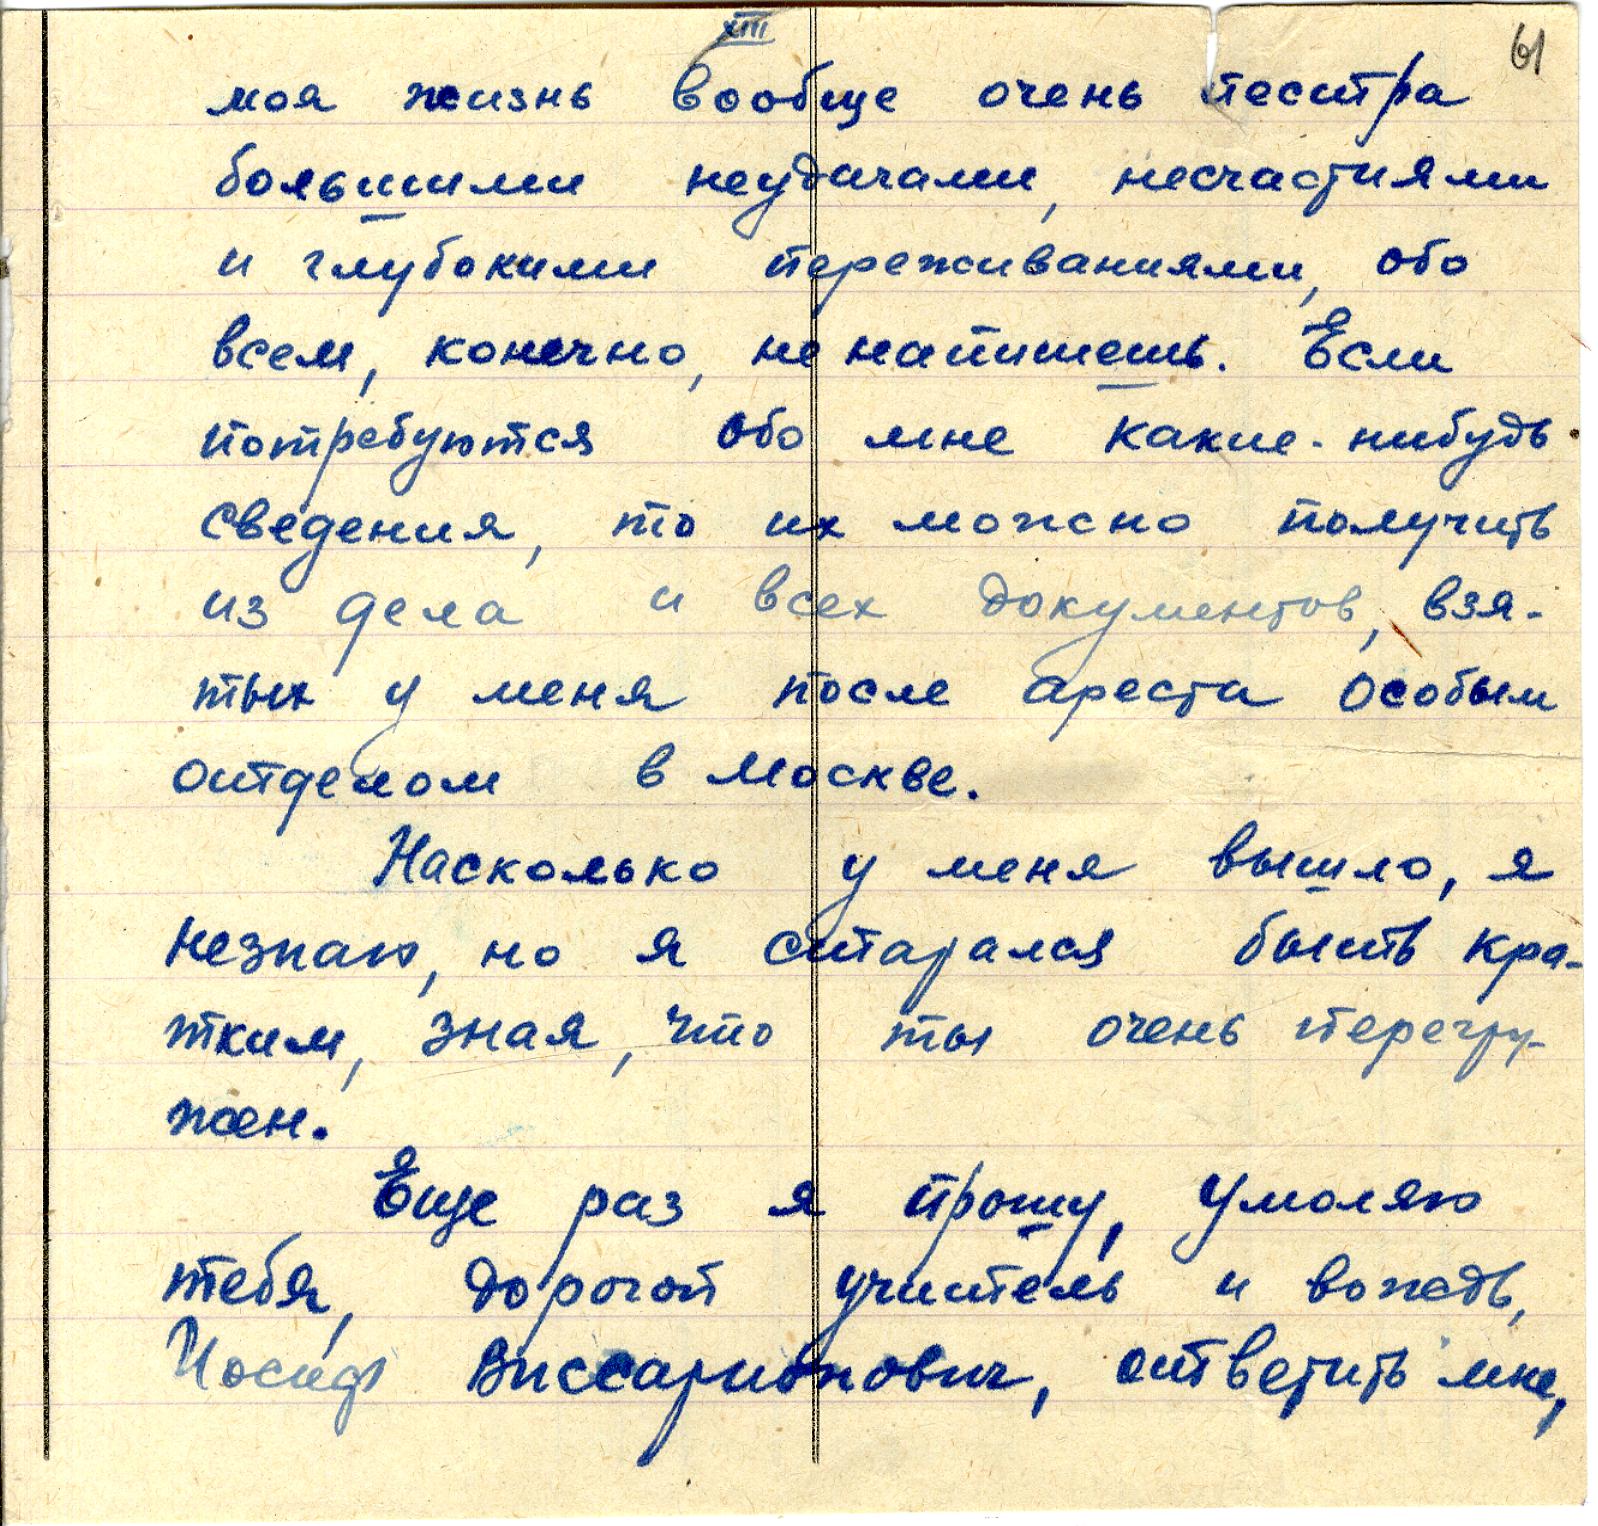 XIII
61
моя жизнь вообще очень пестра
большими неудачами, несчастиями
и глубокими переживаниями, обо
всем, конечно, не напишешь. Если
потребуются обо мне какие-нибудь
сведения, то их можно получить
из дела и всех документов, взя-
тых у меня после ареста особым
отделом в Москве.
Насколько у меня вышло, я
незнаю, но я старался быть кра-
тким, зная, что ты очень перегру-
жен.
Еще раз я прошу, умоляю
тебя, дорогой учитель и вождь,
Иосиф Виссарионович, ответить мне,